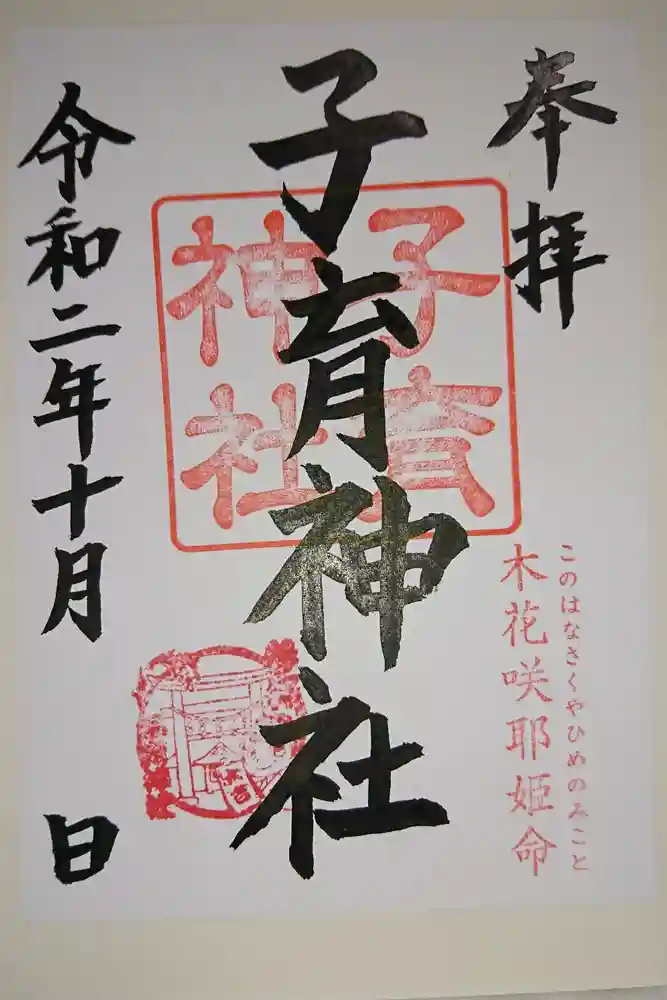 奉拝
このはなさくやひめのみこと
木花咲耶姫命
子育神社
子育
神社
令和二年十月 日